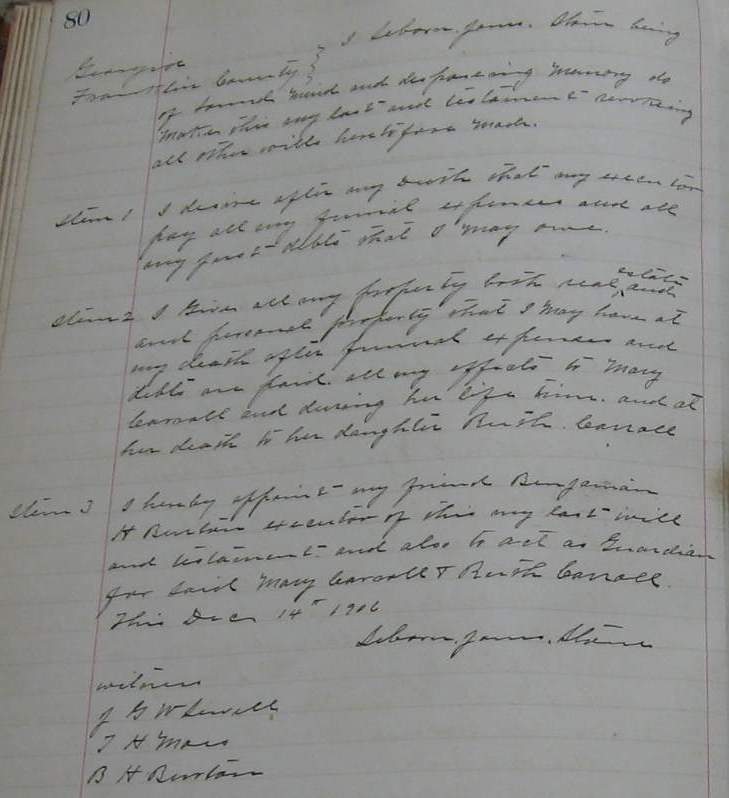 80
I Seborn. Jones. Stone being
Georgia
Franklin County
of sound mind and disposeing memory do
make this my last and testament revokeing
all other wills heretofore made.
Item 1 I desire after my death that my executor
pay all my funial expenses and all
my just debts that I may owe.
Item 2 I Give all my property both real, estate and
and personal property that I may have at
my death after funial expenses and
debts are paid. all my effects to Mary
Carroll and during her life time. and at
her death to her daughter Ruth. Carroll
Item 3 I hereby appoint my friend Benjaman
H Burton executor of this my last will
and testament. and also to act as Guardian
for said Mary Carroll & Ruth Carroll.
This Dec 14th 1906
Seborn. Jones. Stone
witness
J G W Sewell
T H
B H Burton